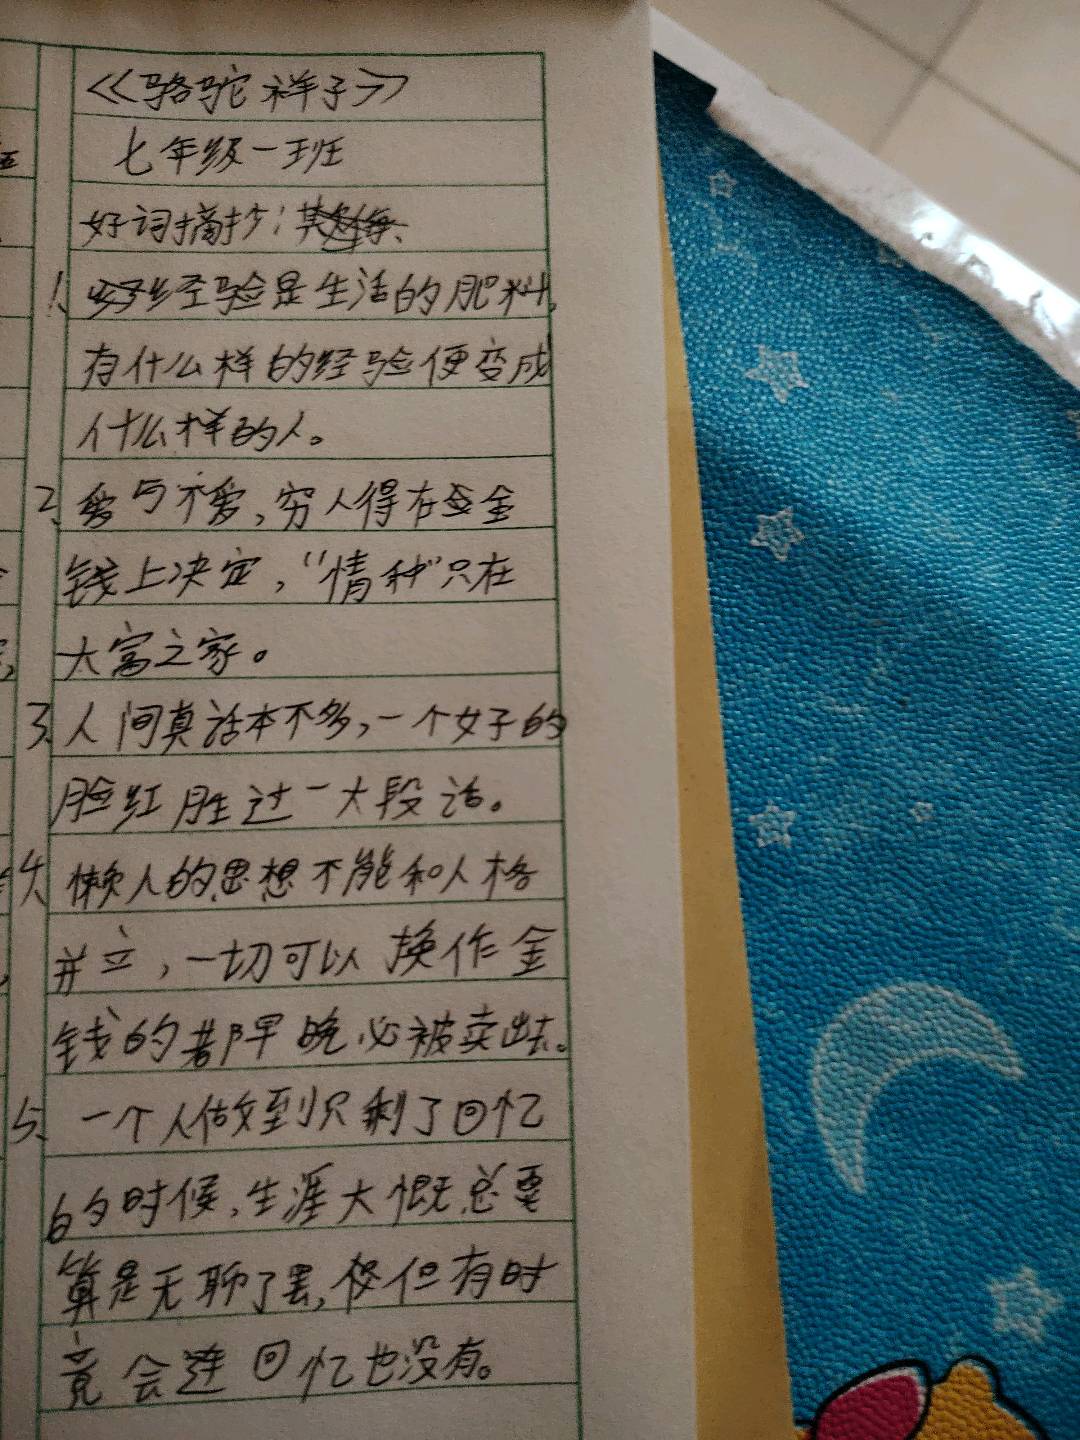 <<骆驼祥子>>
七年级一班
好词摘抄：
1、经验是生活的肥料,
有什么样的经验便变成
什么样的人。
2、爱与不爱,穷人得在金
钱上决定,“情种”只在
大富之家。
3、人间真话本不多,一个女子的
脸红胜过一大段话。
4、懒人的思想不能和人格
并立,一切可以换作金
钱的都早晚必被卖出去。
5、一个人做到只剩了回忆
的时候,生涯大概总要
算是无聊了罢,但有时
竟会连回忆也没有。